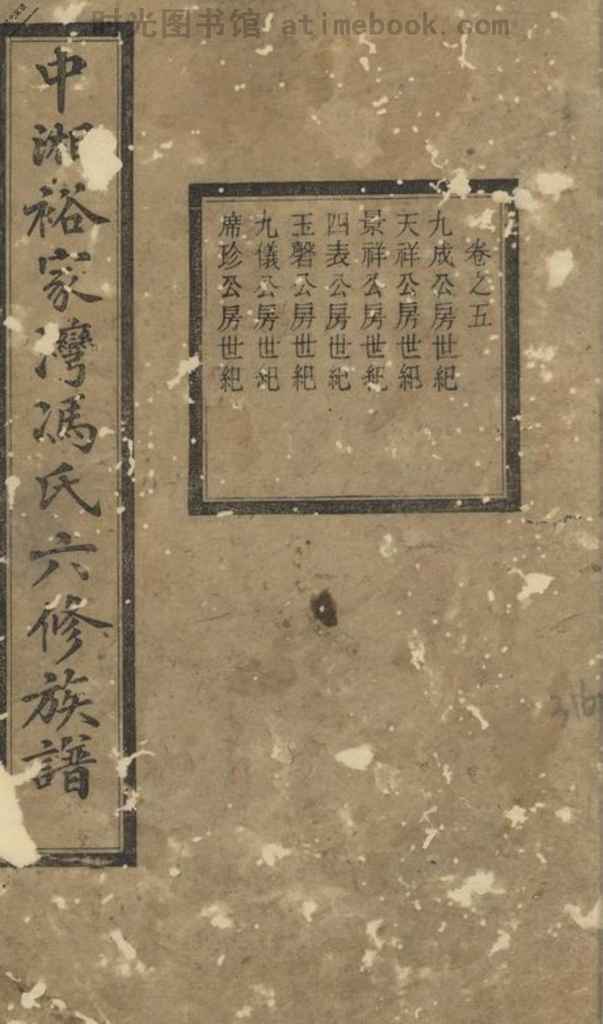 时光图书馆 atimebook.com
中湘裕家灣馮氏六修族譜
卷之五
九成公房世紀
天祥公房世紀
景祥公房世紀
四表公房世紀
玉磬公房世紀
九儀公房世紀
席珍公房世紀
时光图书馆 atimebook.com